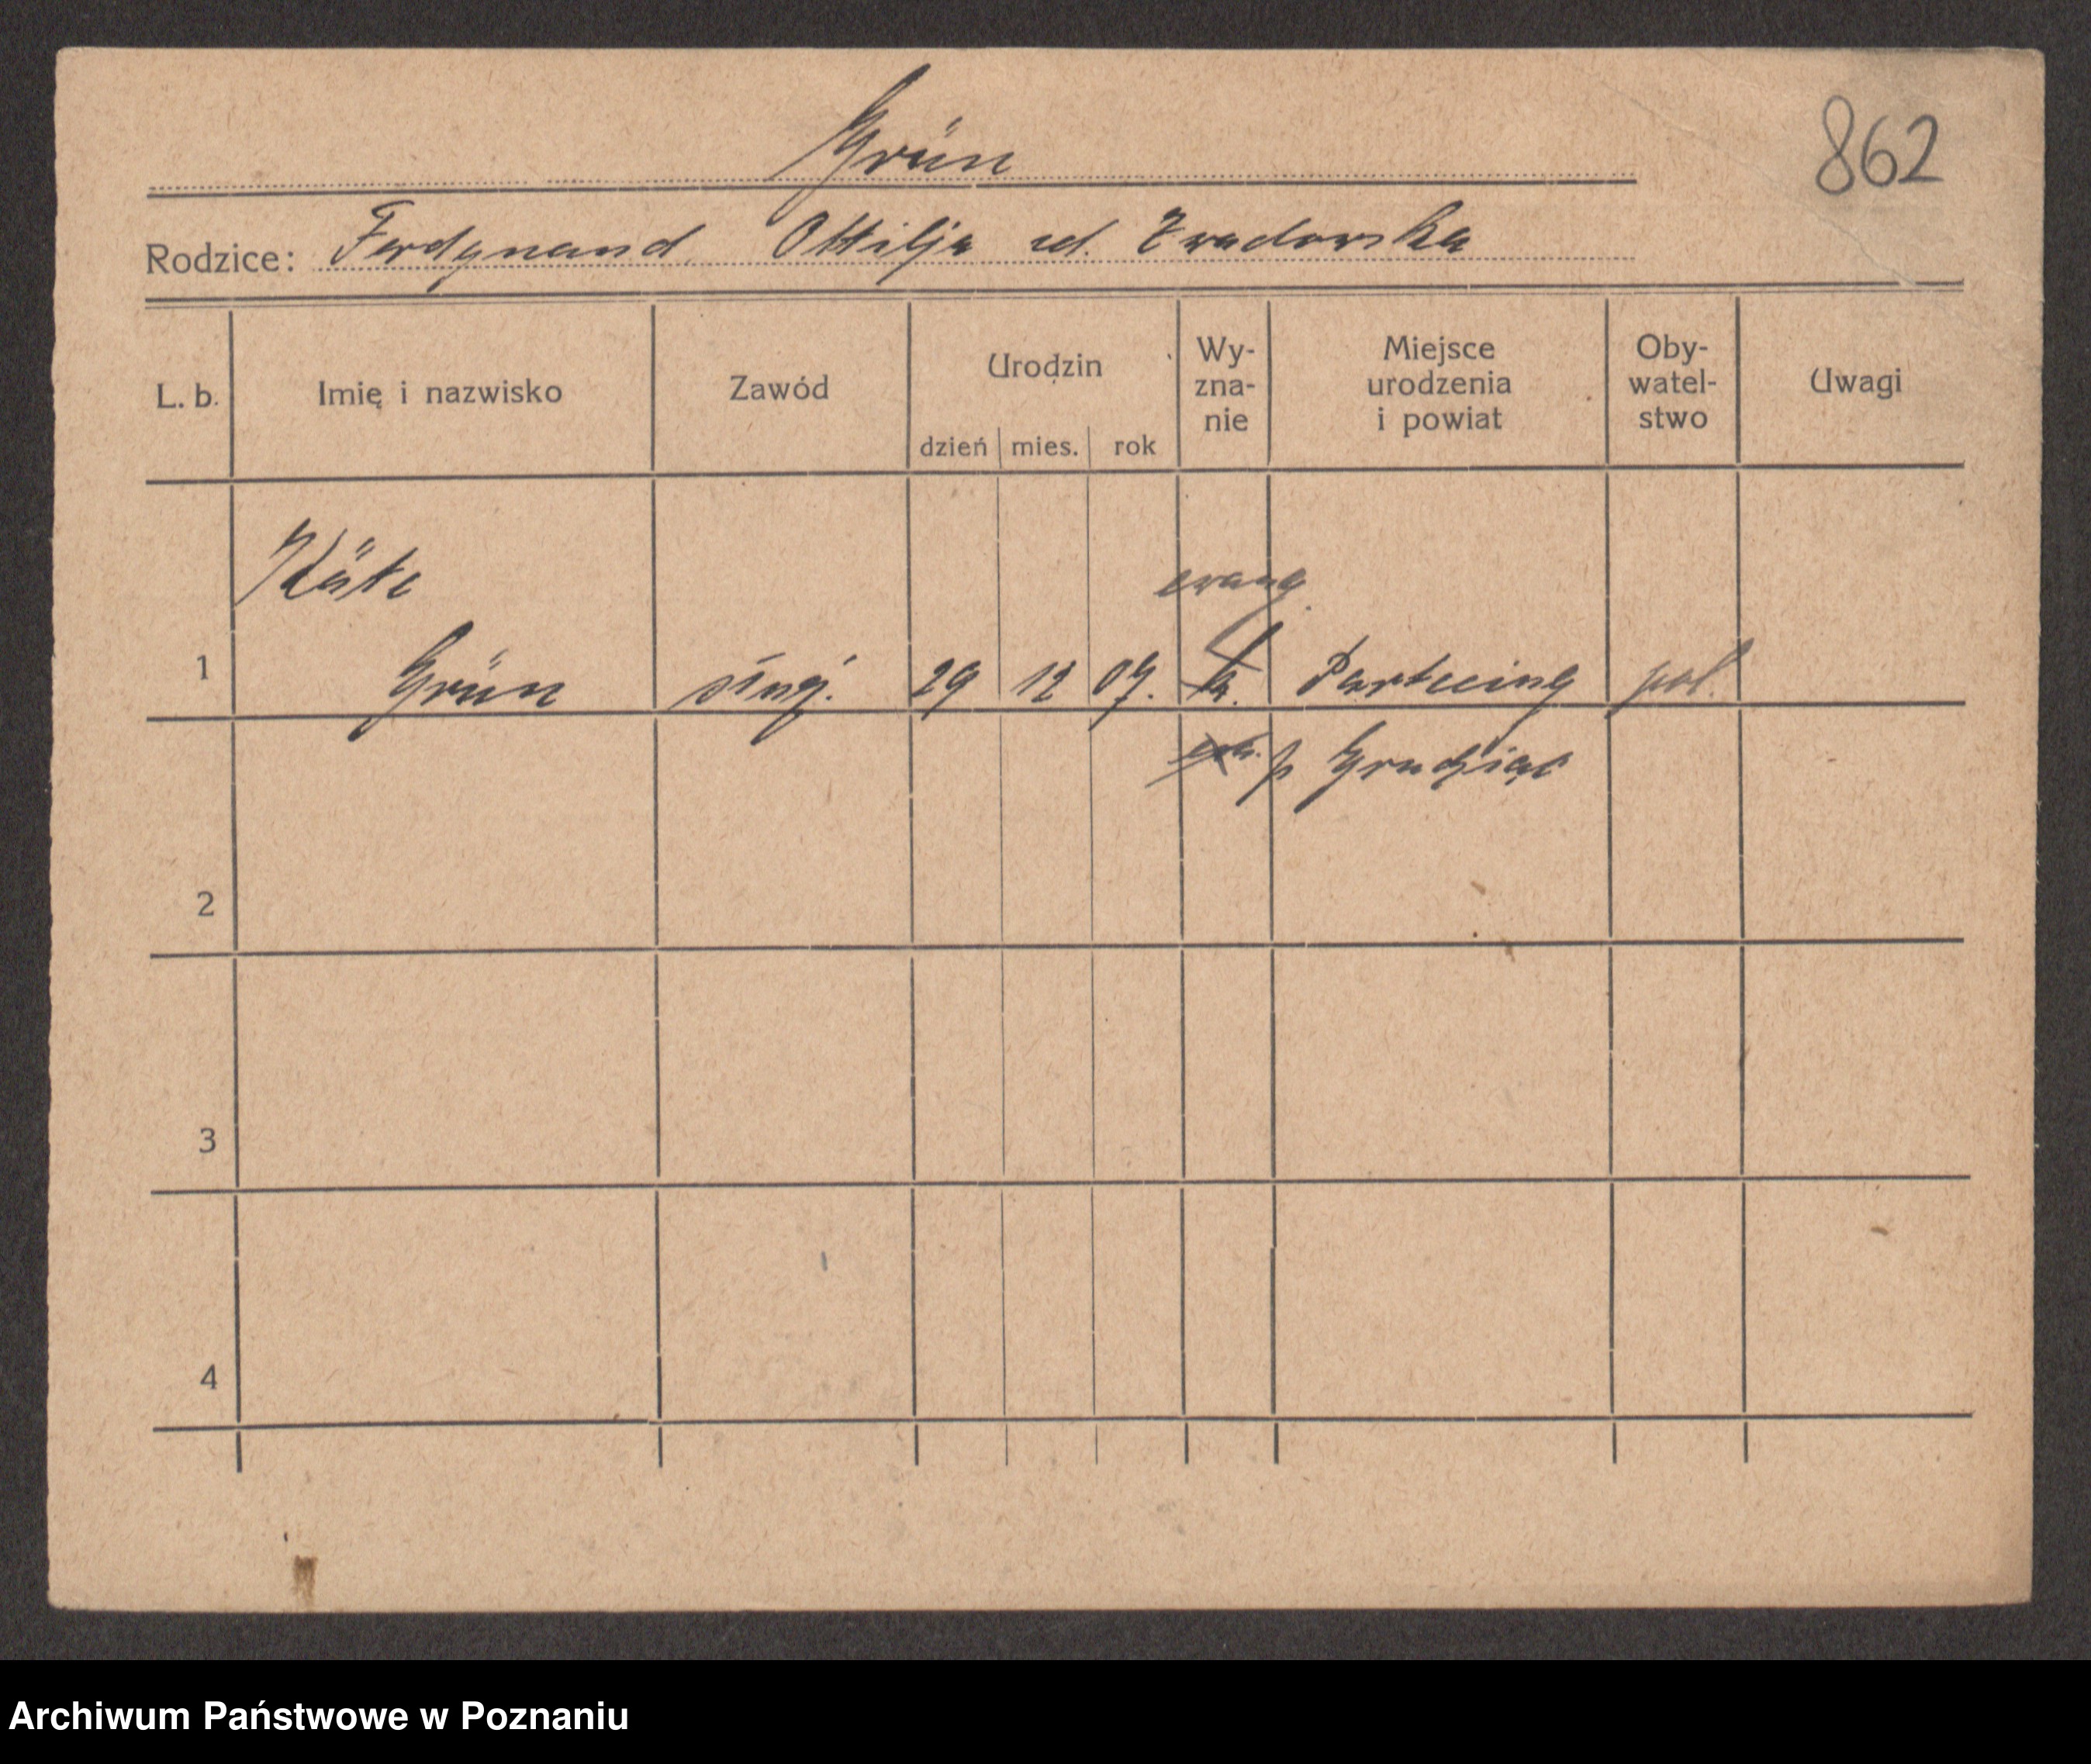 Grün
862
Rodzice: Ferdynand Ottilja zd. Zwadowska
L. b. Imię i nazwisko Zawód Urodzin dzień mies. rok Wy-zna-nie Miejsce urodzenia i powiat Oby-watel-stwo Uwagi
Käte
ewang.
1 Grün służ. 29 12 07. k. Partecing pol.
p Grudziąc
2
3
4
Archiwum Państwowe w Poznaniu